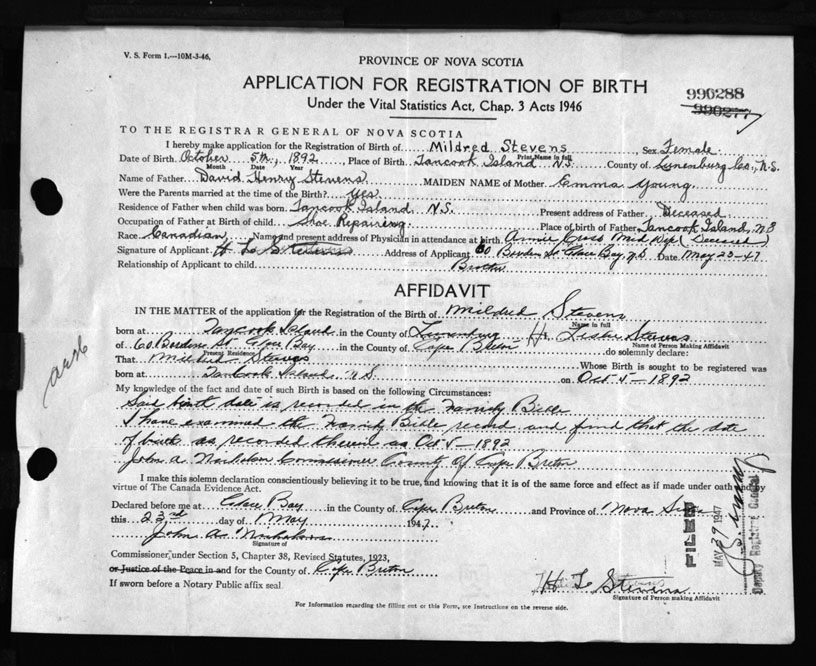 V. S. Form 1.—10M-3-46.
PROVINCE OF NOVA SCOTIA
APPLICATION FOR REGISTRATION OF BIRTH
Under the Vital Statistics Act, Chap. 3 Acts 1946
990288
990277
TO THE REGISTRAR GENERAL OF NOVA SCOTIA
I hereby make application for the Registration of Birth of Mildred Stevens Sex Female
Print Name in full
Date of Birth October 5th, 1892 Place of Birth Tancook Island N.S. County of Lunenburg Co., N.S.
Month Date Year
Name of Father David Henry Stevens MAIDEN NAME of Mother Emma Young.
Were the Parents married at the time of the Birth? Yes
Residence of Father when child was born Tancook Island N.S. Present address of Father Deceased
Occupation of Father at Birth of child Shoe Repairing. Place of birth of Father Tancook Island, N S
Race Canadian Name and present address of Physician in attendance at birth. Annie Cross Mid (Deceased)
Signature of Applicant H L Stevens Address of Applicant 60 Borden St Glace Bay, N S Date May 23-47
Relationship of Applicant to child Brother
AFFIDAVIT
IN THE MATTER of the application for the Registration of the Birth of Mildred Stevens
Name in full
born at Tancook Island in the County of Lunenburg Stevens
Name of Person Making Affidavit
of 60 Borden St Glace Bay in the County of Cape Breton do solemnly declare:
Present Residence
That Mildred Stevens Whose Birth is sought to be registered was
born at Tancook Island N S. on Oct 5 - 1892
My knowledge of the fact and date of such Birth is based on the following Circumstances:
Said birth date is recorded in the Family Bible
I have examined the Family Bible record and find that the date
of birth as recorded therein as Oct 5 - 1892
John A County of Cape Breton
I make this solemn declaration conscientiously believing it to be true, and knowing that it is of the same force and effect as if made under oath and by
virtue of The Canada Evidence Act.
Declared before me at Glace Bay in the County of Cape Breton and Province of Nova Scotia
this 23rd day of May 1947
John A.
Signature of
Commissioner under Section 5, Chapter 38, Revised Statutes, 1923,
or Justice of the Peace in and for the County of Cape Breton
If sworn before a Notary Public affix seal.
H L Stevens
Signature of Person making Affidavit
For Information regarding the filling out of this Form, see Instructions on the reverse side.
FILED
MAY 29 1947
Deputy Registrar General